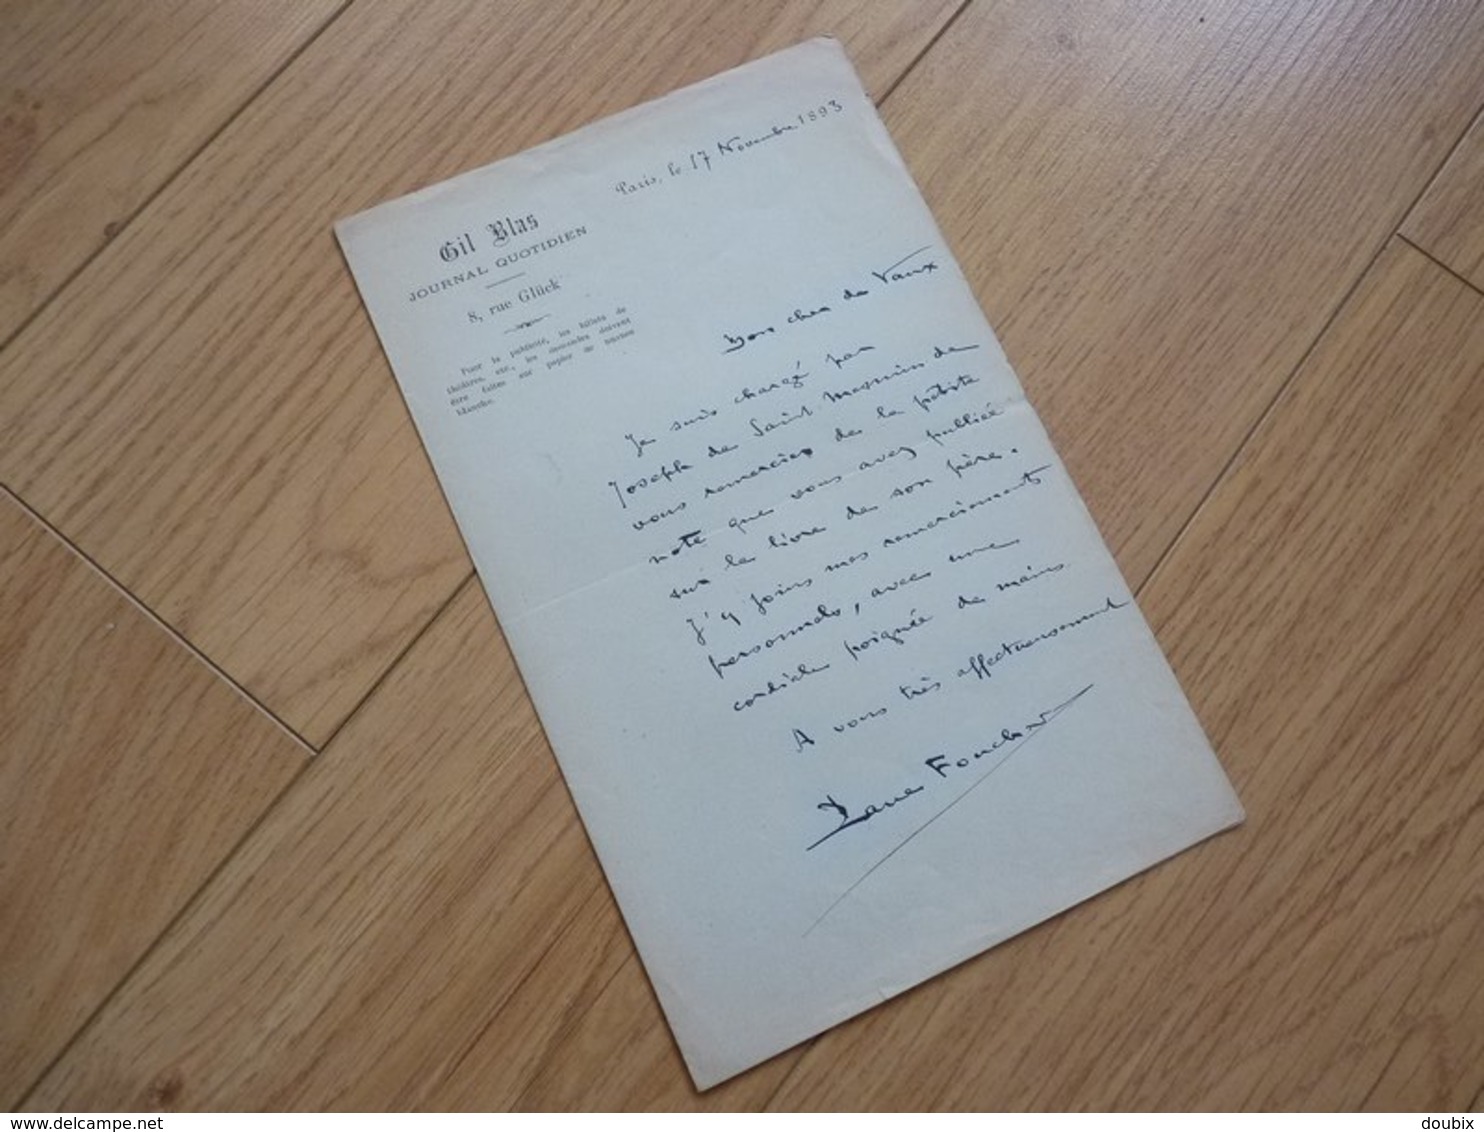 Paris, le 17 Novembre 1893
Gil Blas
JOURNAL QUOTIDIEN
8, rue Glück
Pour la publicité, les billets de
théâtres, etc., les demandes doivent
être faites sur papier de
blanche.
Mon cher de Vaux
Je suis chargé par
Joseph de Saint Mesmin de
vous remercier de la petite
note que vous avez publiée
sur le livre de son père.
J'y joins mes remerciements
personnels, avec une
cordiale poignée de mains.
A vous très affectueusement
Foucher
www.delcampe.net
doubix